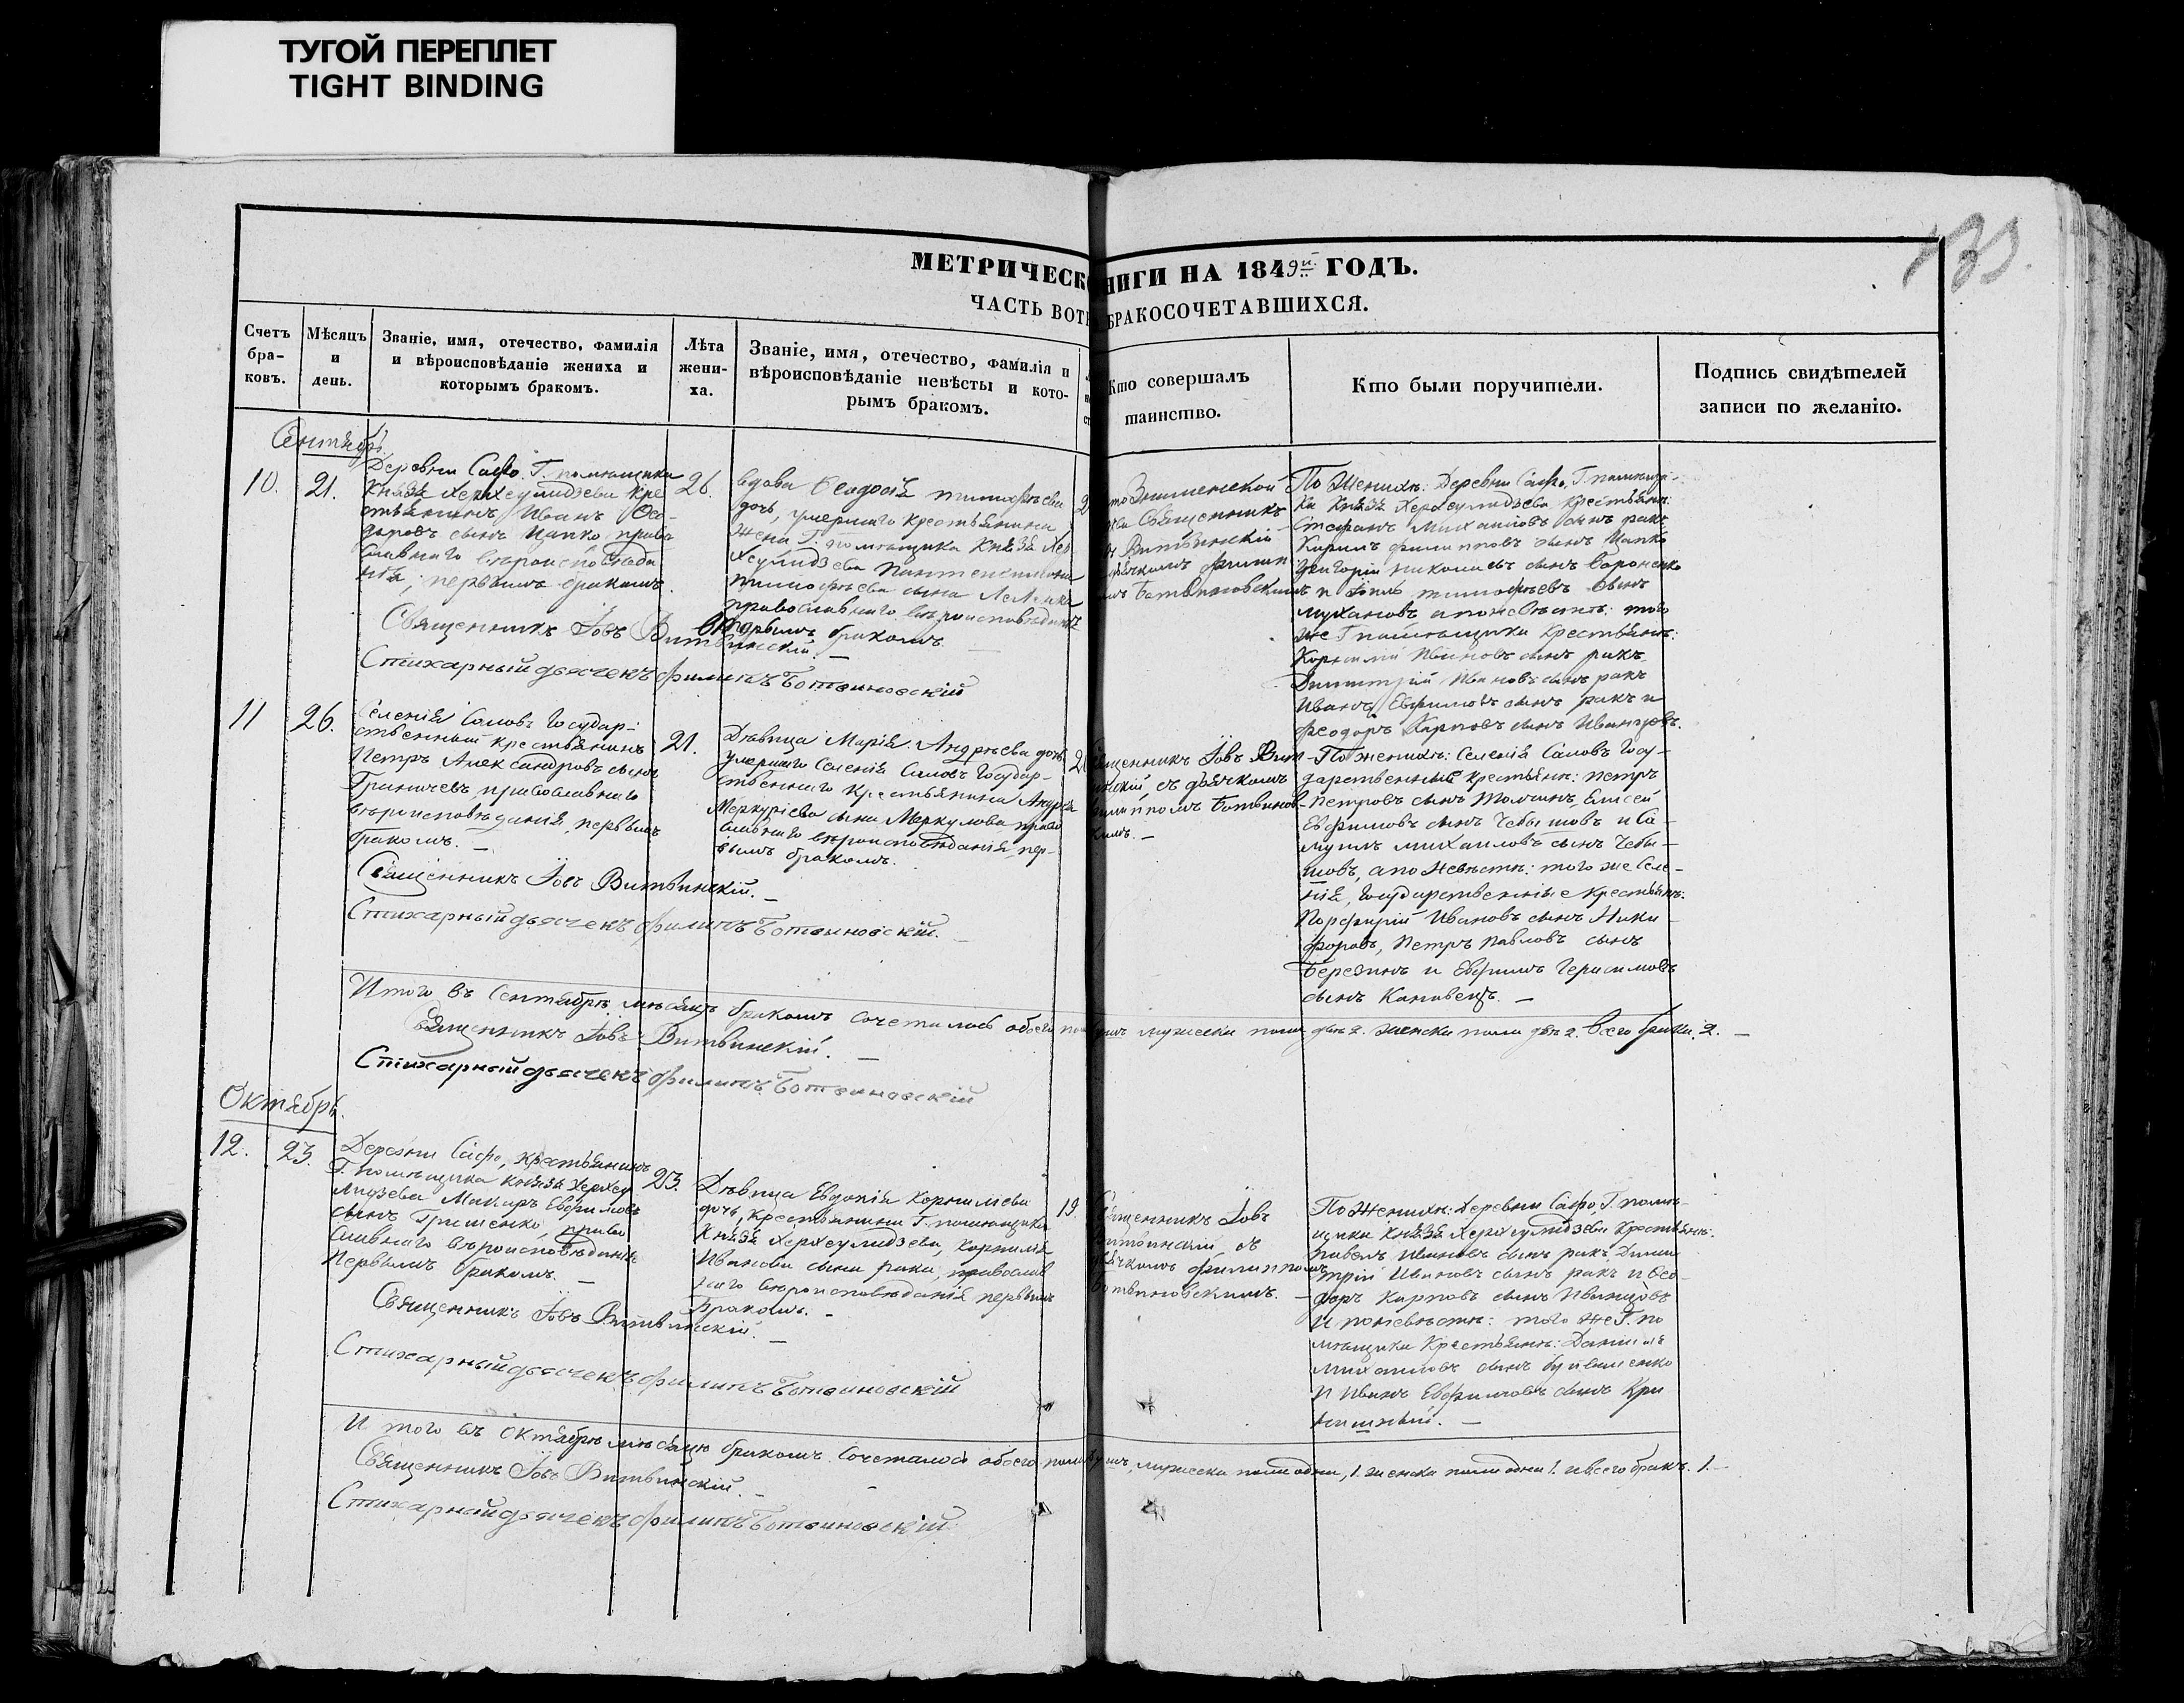 ТУГОЙ ПЕРЕПЛЕТ
TIGHT BINDING
МЕТРИЧЕСК НИГИ НА 1849й ГОДЪ.
ЧАСТЬ ВОТ БРАКОСОЧЕТАВШИХСЯ.
Счетъ
бра-
ковъ.
Мѣсяцъ
и
день.
Званіе, имя, отечество, фамилія
и вѣроисповѣданіе жениха и
которымъ бракомъ.
Лѣта
жени-
ха.
Званіе, имя, отечество, фамилія и
вѣроисповѣданіе невѣсты и кото-
рымъ бракомъ.
Кто совершалъ
таинство.
Кто были поручители.
Подпись свидѣтелей
записи по желанію.
Сентябрь
10.
21.
Деревни Софо. Г. помѣщика
Князя Херхеулидзева кре
стьянинъ Иванъ Ѳео-
доровъ сынъ Цапко право
славнаго вѣроисповѣда
нія, первымъ бракомъ.
26.
вдова Ѳеодосія тимофѣева
дочь, умершаго крестьянина
жена Г. помѣщика Князя Хер
Хеулидзева Пантелеимона
тимофѣева сына
православнаго вѣроисповѣданія
вторымъ бракомъ.
2
Священникъ
Витвинскій
Филип
Ботвиновскимъ
По Женихѣ: Деревни Софо, Г. помѣщи-
ка Князя Херхеулидзева Крестьяне:
Стефанъ Михаиловъ сынъ ракъ
Кирилъ филиповъ сынъ Цапко
Григорій николаевъ сынъ Вороненко
и тимофѣевъ сынъ
мухановъ а по невѣстѣ: того
же Г помѣщика Крестьяне:
Корнилій Ивановъ сынъ ракъ
Димитрій Ивановъ сынъ ракъ
Иванъ Евфимовъ сынъ ракъ и
Феодоръ Карповъ сынъ Иванцовъ.
Священникъ Іовъ Витвинскій. —
Стихарный дьячекъ Филипъ Ботвиновскій
11
26.
Селенія Саловъ Государ-
ственный крестьянинъ
Петръ Александровъ сынъ
православнаго
вѣроисповѣданія, первымъ
бракомъ. —
21.
Дѣвица Марія Андрѣева дочь
умершаго Селенія Саловъ Государ-
ственнаго Крестьянина Андрея
Меркуріева сына Меркулова право
славнаго вѣроисповѣданія, пер-
вымъ бракомъ.
2
Священникъ Іовъ Вит-
винскій, съ дьячкомъ
филиппомъ Ботвинов-
скимъ. —
По женихѣ: Селенія Саловъ Госу-
дарственные крестьяне: петръ
Петровъ сынъ Толчинъ, Елисей
Евфимовъ сынъ Чебышовъ и Са-
муилъ михаиловъ сынъ Чебы-
шовъ, а по невѣстѣ: того же Селе-
нія, Государственные крестьяне:
Порфирій Ивановъ сынъ Ники-
форовъ, Петръ Павловъ сынъ
Березинъ и Евфимъ Герасимовъ
сынъ Канивецъ. —
Священникъ Іовъ Витвинскій. —
Стихарный дьячекъ Филипъ Ботвиновскій. —
Итого въ Сентябрѣ мѣсяцѣ бракомъ сочеталось обоего пола душъ мужеска пола двѣ 2. женска пола двѣ 2. всего брака. 2. —
Священникъ Іовъ Витвинскій. —
Стихарный дьячекъ Филипъ Ботвиновскій
Октябрь.
12.
23.
Деревни Софо, крестьянинъ
Г. помѣщика князя Херхеу
лидзева Макаръ Евфимовъ
сынъ Гриценко, право
славнаго вѣроисповѣданія
Первымъ бракомъ. —
23.
Дѣвица Евдокія Корнилиева
дочь, Крестьянина Г. помѣщика
Князя Херхеулидзева, Корнилія
Иванова сына рака, православ
наго вѣроисповѣданія первымъ
Бракомъ. —
19.
Священникъ Іовъ
Витвинскій, съ
дьячкомъ филиппомъ
Ботвиновскимъ. —
По Женихѣ: Деревни Софо, Г. помѣ-
щика Князя Херхеулидзева Крестьяне:
павелъ Ивановъ сынъ ракъ Дими
трій Ивановъ сынъ ракъ и Ѳео-
доръ Карповъ сынъ Иванцовъ
И по невѣстѣ: того же Г. по
мѣщика Крестьяне: Даніилъ
михаиловъ сынъ
И Иванъ Евфимовъ сынъ Кри
Священникъ Іовъ Витвинскій. —
Стихарный дьячекъ Филипъ Ботвиновскій
И того въ Октябрѣ мѣсяцѣ бракомъ сочеталось обоего пола душъ, мужеска пола одна, 1. женска пола одна 1. и всего бракъ. 1. —
Священникъ Іовъ Витвинскій. —
Стихарный дьячекъ Филипъ Ботвиновскій